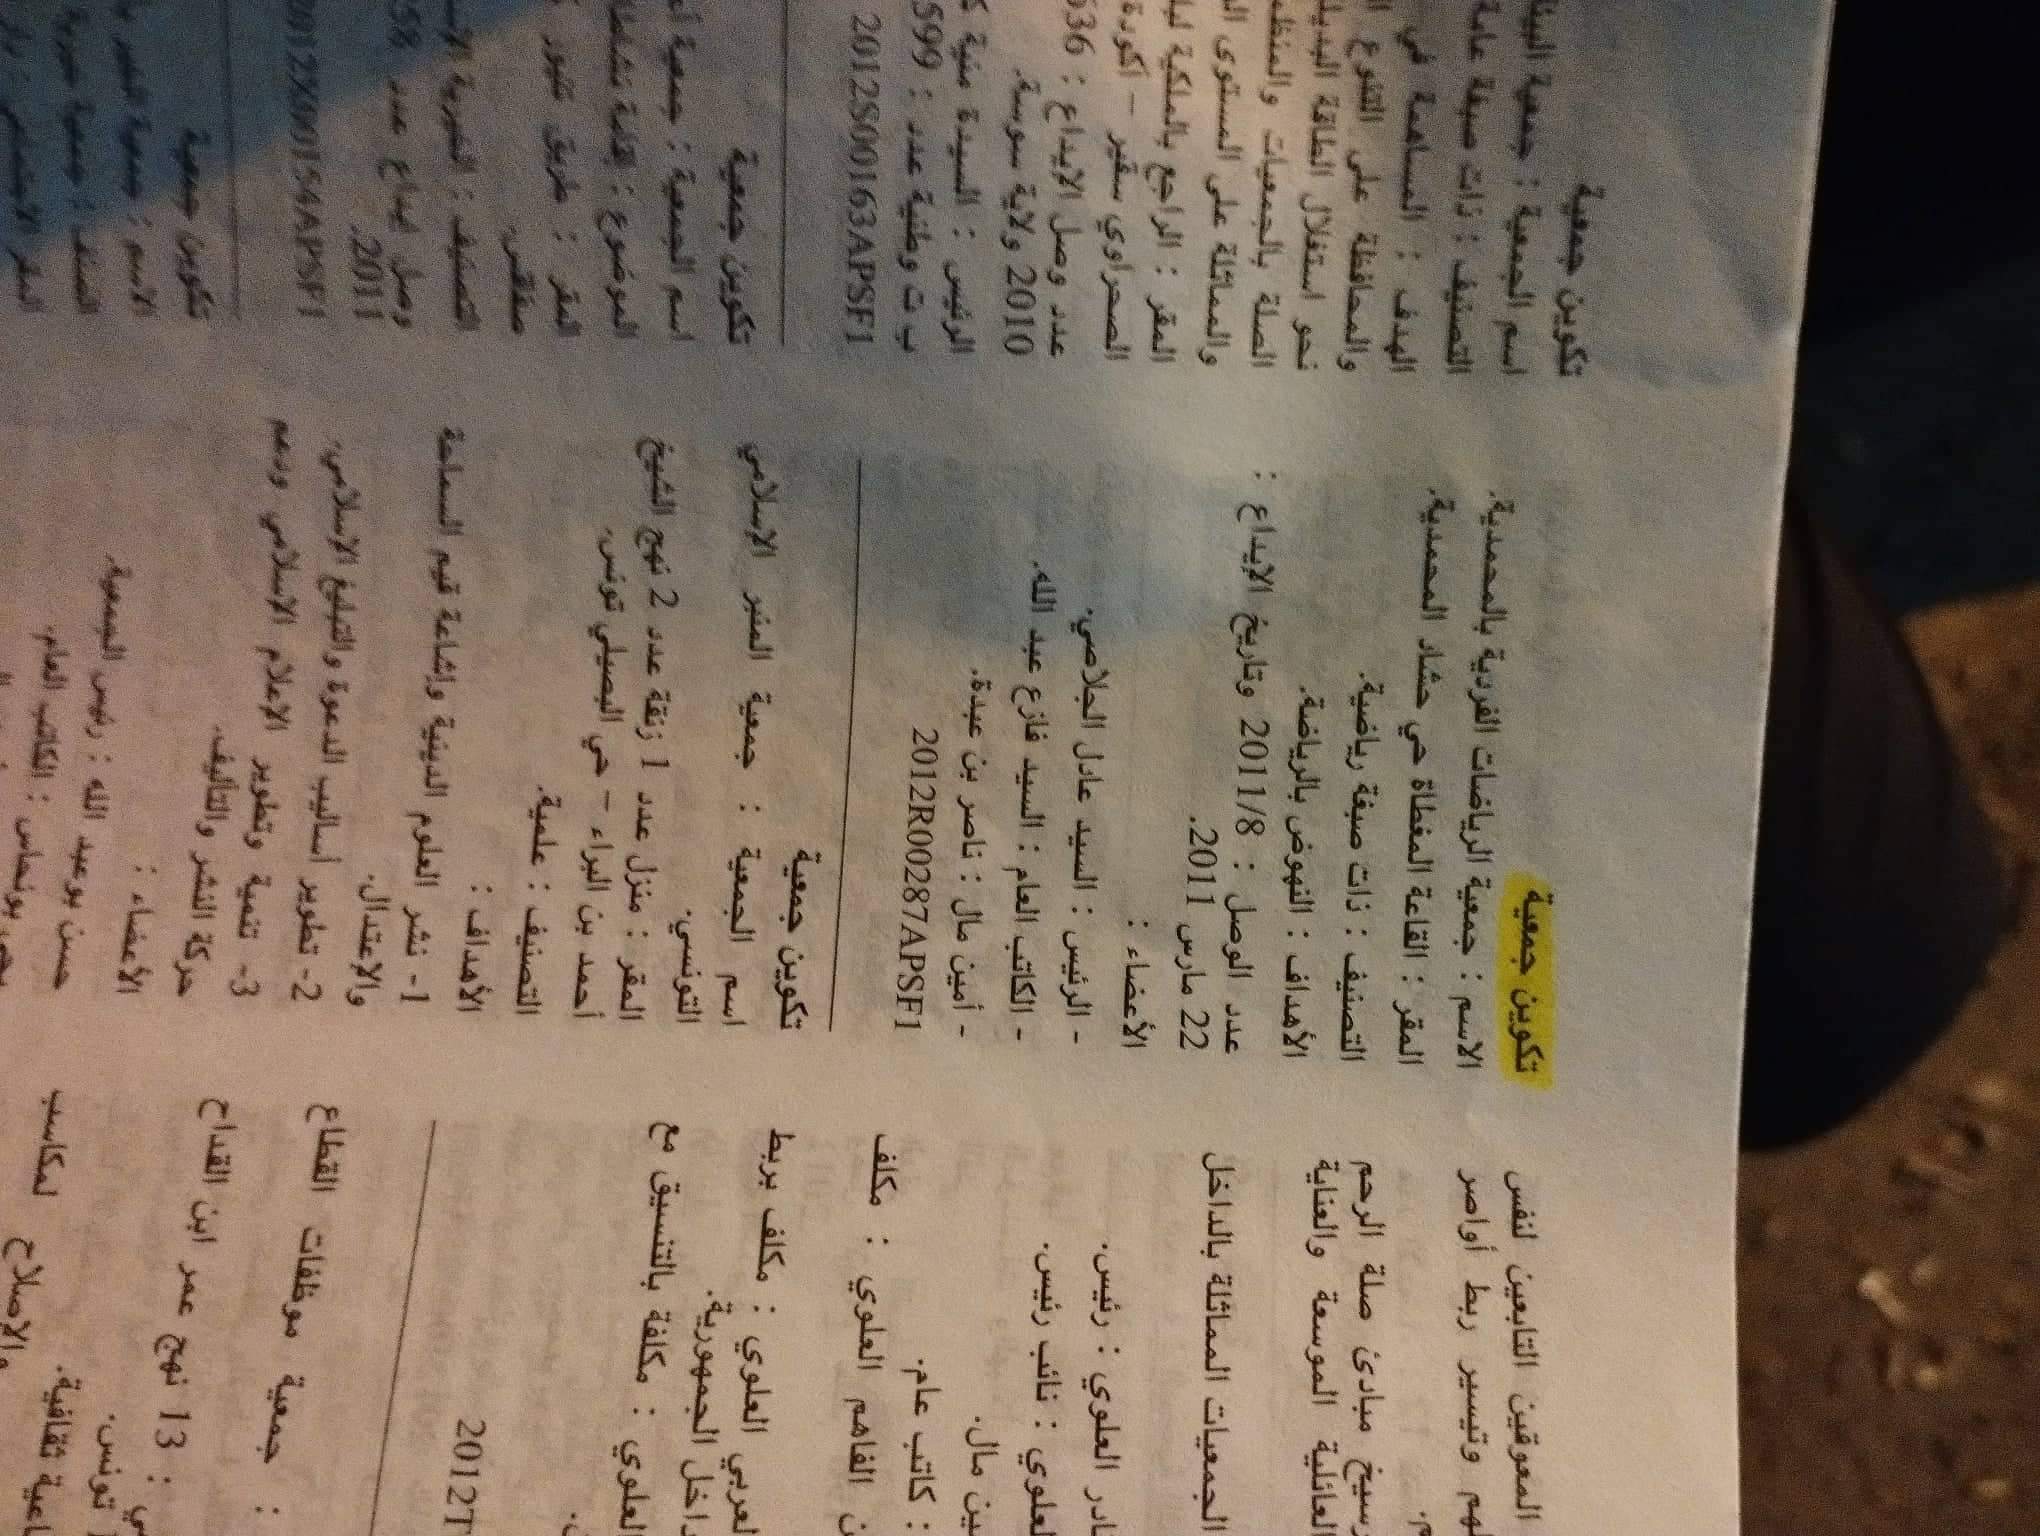 المعوقين التابعين لنفس
لهم وتيسير ربط أواصر
رسيخ مبادئ صلة الرحم
العائلية الموسعة والعناية
الجمعيات المماثلة بالداخل
العلوي : رئيس.
العلوي : نائب رئيس.
مال.
: كاتب عام.
الفاهم العلوي : مكلف
العربي العلوي : مكلف بربط
داخل الجمهورية.
العلوي : مكلفة بالتنسيق مع
2012T
: جمعية موظفات القطاع
: 13 نهج عمر ابن القداح
تونس.
ثقافية.
والإصلاح لمكاسب
تكوين جمعية
الاسم : جمعية الرياضات الفردية بالمحمدية.
المقر : القاعة المغطاة حي حشاد المحمدية.
التصنيف : ذات صبغة رياضية.
الأهداف : النهوض بالرياضة.
عدد الوصل : 2011/8 وتاريخ الإيداع :
22 مارس 2011.
الأعضاء :
- الرئيس : السيد عادل الجلاصي.
- الكاتب العام : السيد فازع عبد الله.
- أمين مال : ناصر بن عبدة.
2012R00287APSF1
تكوين جمعية
اسم الجمعية : جمعية المنبر الاسلامي
التونسي.
المقر : منزل عدد 1 زنقة عدد 2 نهج الشيخ
أحمد بن البراء – حي البصيلي تونس.
التصنيف : علمية.
الأهداف :
1- نشر العلوم الدينية وإشاعة قيم السماحة
والاعتدال.
2- تطوير أساليب الدعوة والتبليغ الاسلامي.
3- تنمية وتطوير الاعلام الاسلامي ودعم
حركة النشر والتأليف.
الأعضاء :
حسن بوعبد الله : رئيس الجمعية.
: الكاتب العام.
تكوين جمعية
اسم الجمعية : جمعية البيئة
التصنيف : ذات صبغة عامة
الهدف : المساهمة في
والمحافظة على التنوع
نحو استغلال الطاقة البديلة
الصلة بالجمعيات والمنظمات
والمماثلة على المستوى
المقر : الراجع بالملكية
الصحراوي سقير – أكودة
عدد وصل الايداع : 636
2010 ولاية سوسة.
الرئيس : السيدة منية
ب ت وطنية عدد : 599
2012S00163APSF1
تكوين جمعية
اسم الجمعية : جمعية
الموضوع : إقامة
المقر : طريق تنيور
صفاقس.
التصنيف : الخيرية
وصل إيداع عدد 58
2011.
2012X00154APSF1
تكوين جمعية
الاسم : جمعية
الصنف : جمعية خيرية